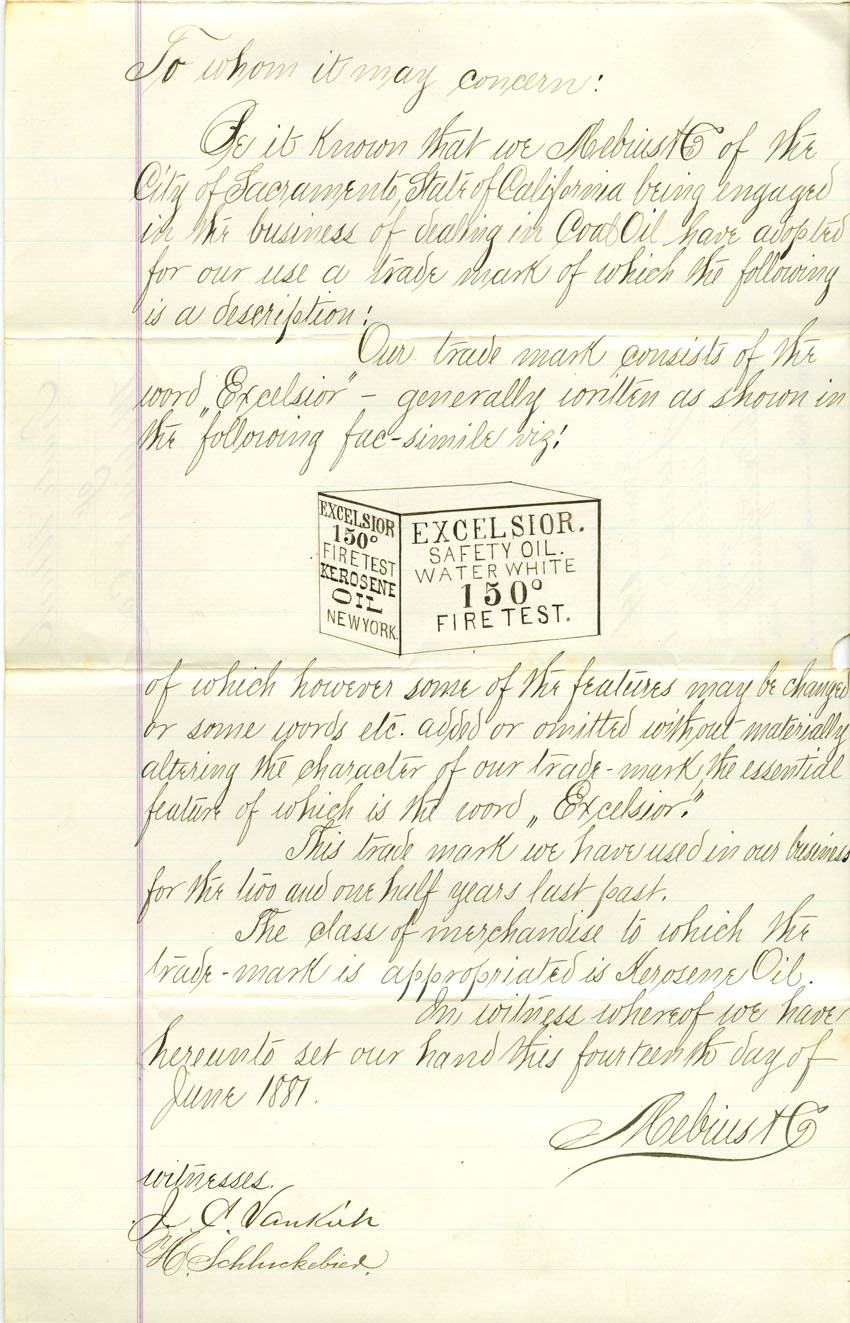 To whom it may concern:
Be it known that we Mebius & Co of the
City of Sacramento, State of California being engaged
in the business of dealing in Coal Oil have adopted
for our use a trade mark of which the following
is a description:
Our trade mark consists of the
word „Excelsior" – generally written as shown in
the "following fac-simile viz:
EXCELSIOR
150°
FIRE TEST
KEROSENE
OIL
NEW YORK.
EXCELSIOR.
SAFETY OIL.
WATER WHITE
150°
FIRE TEST.
of which however some of the features may be changed
or some words etc. added or omitted without materially
altering the character of our trade-mark, the essential
feature of which is the word „Excelsior."
This trade mark we have used in our business
for the two and one half years last past.
The class of merchandise to which the
trade-mark is appropriated is Kerosene Oil.
In witness whereof we have
hereunto set our hand this fourteenth day of
June 1881.
Mebius & Co
witnesses.
J. C. Vankirk
H. Schluckebier.